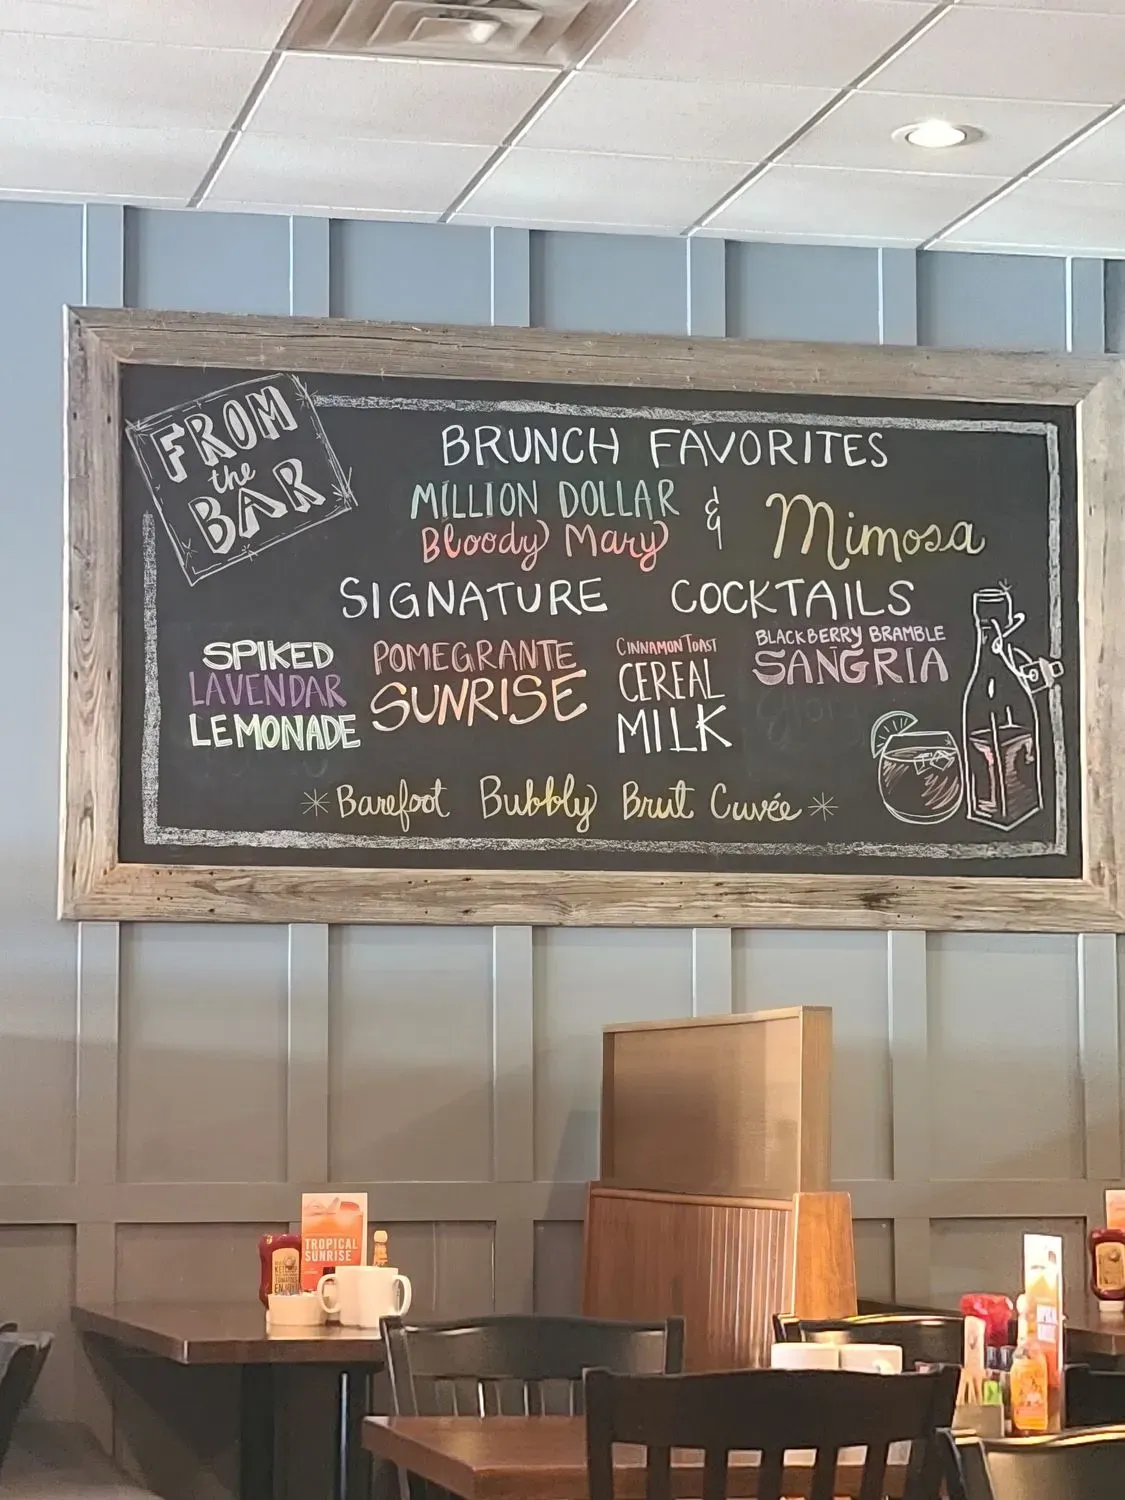 FROM
the
BAR
BRUNCH FAVORITES
MILLION DOLLAR
Bloody Mary
&
Mimosa
SIGNATURE COCKTAILS
SPIKED
LAVENDAR
LEMONADE
POMEGRANTE
SUNRISE
CINNAMON TOAST
CEREAL
MILK
BLACKBERRY BRAMBLE
SANGRIA
Barefoot Bubbly Brut Cuvée
TROPICAL
SUNRISE
KETCHUP